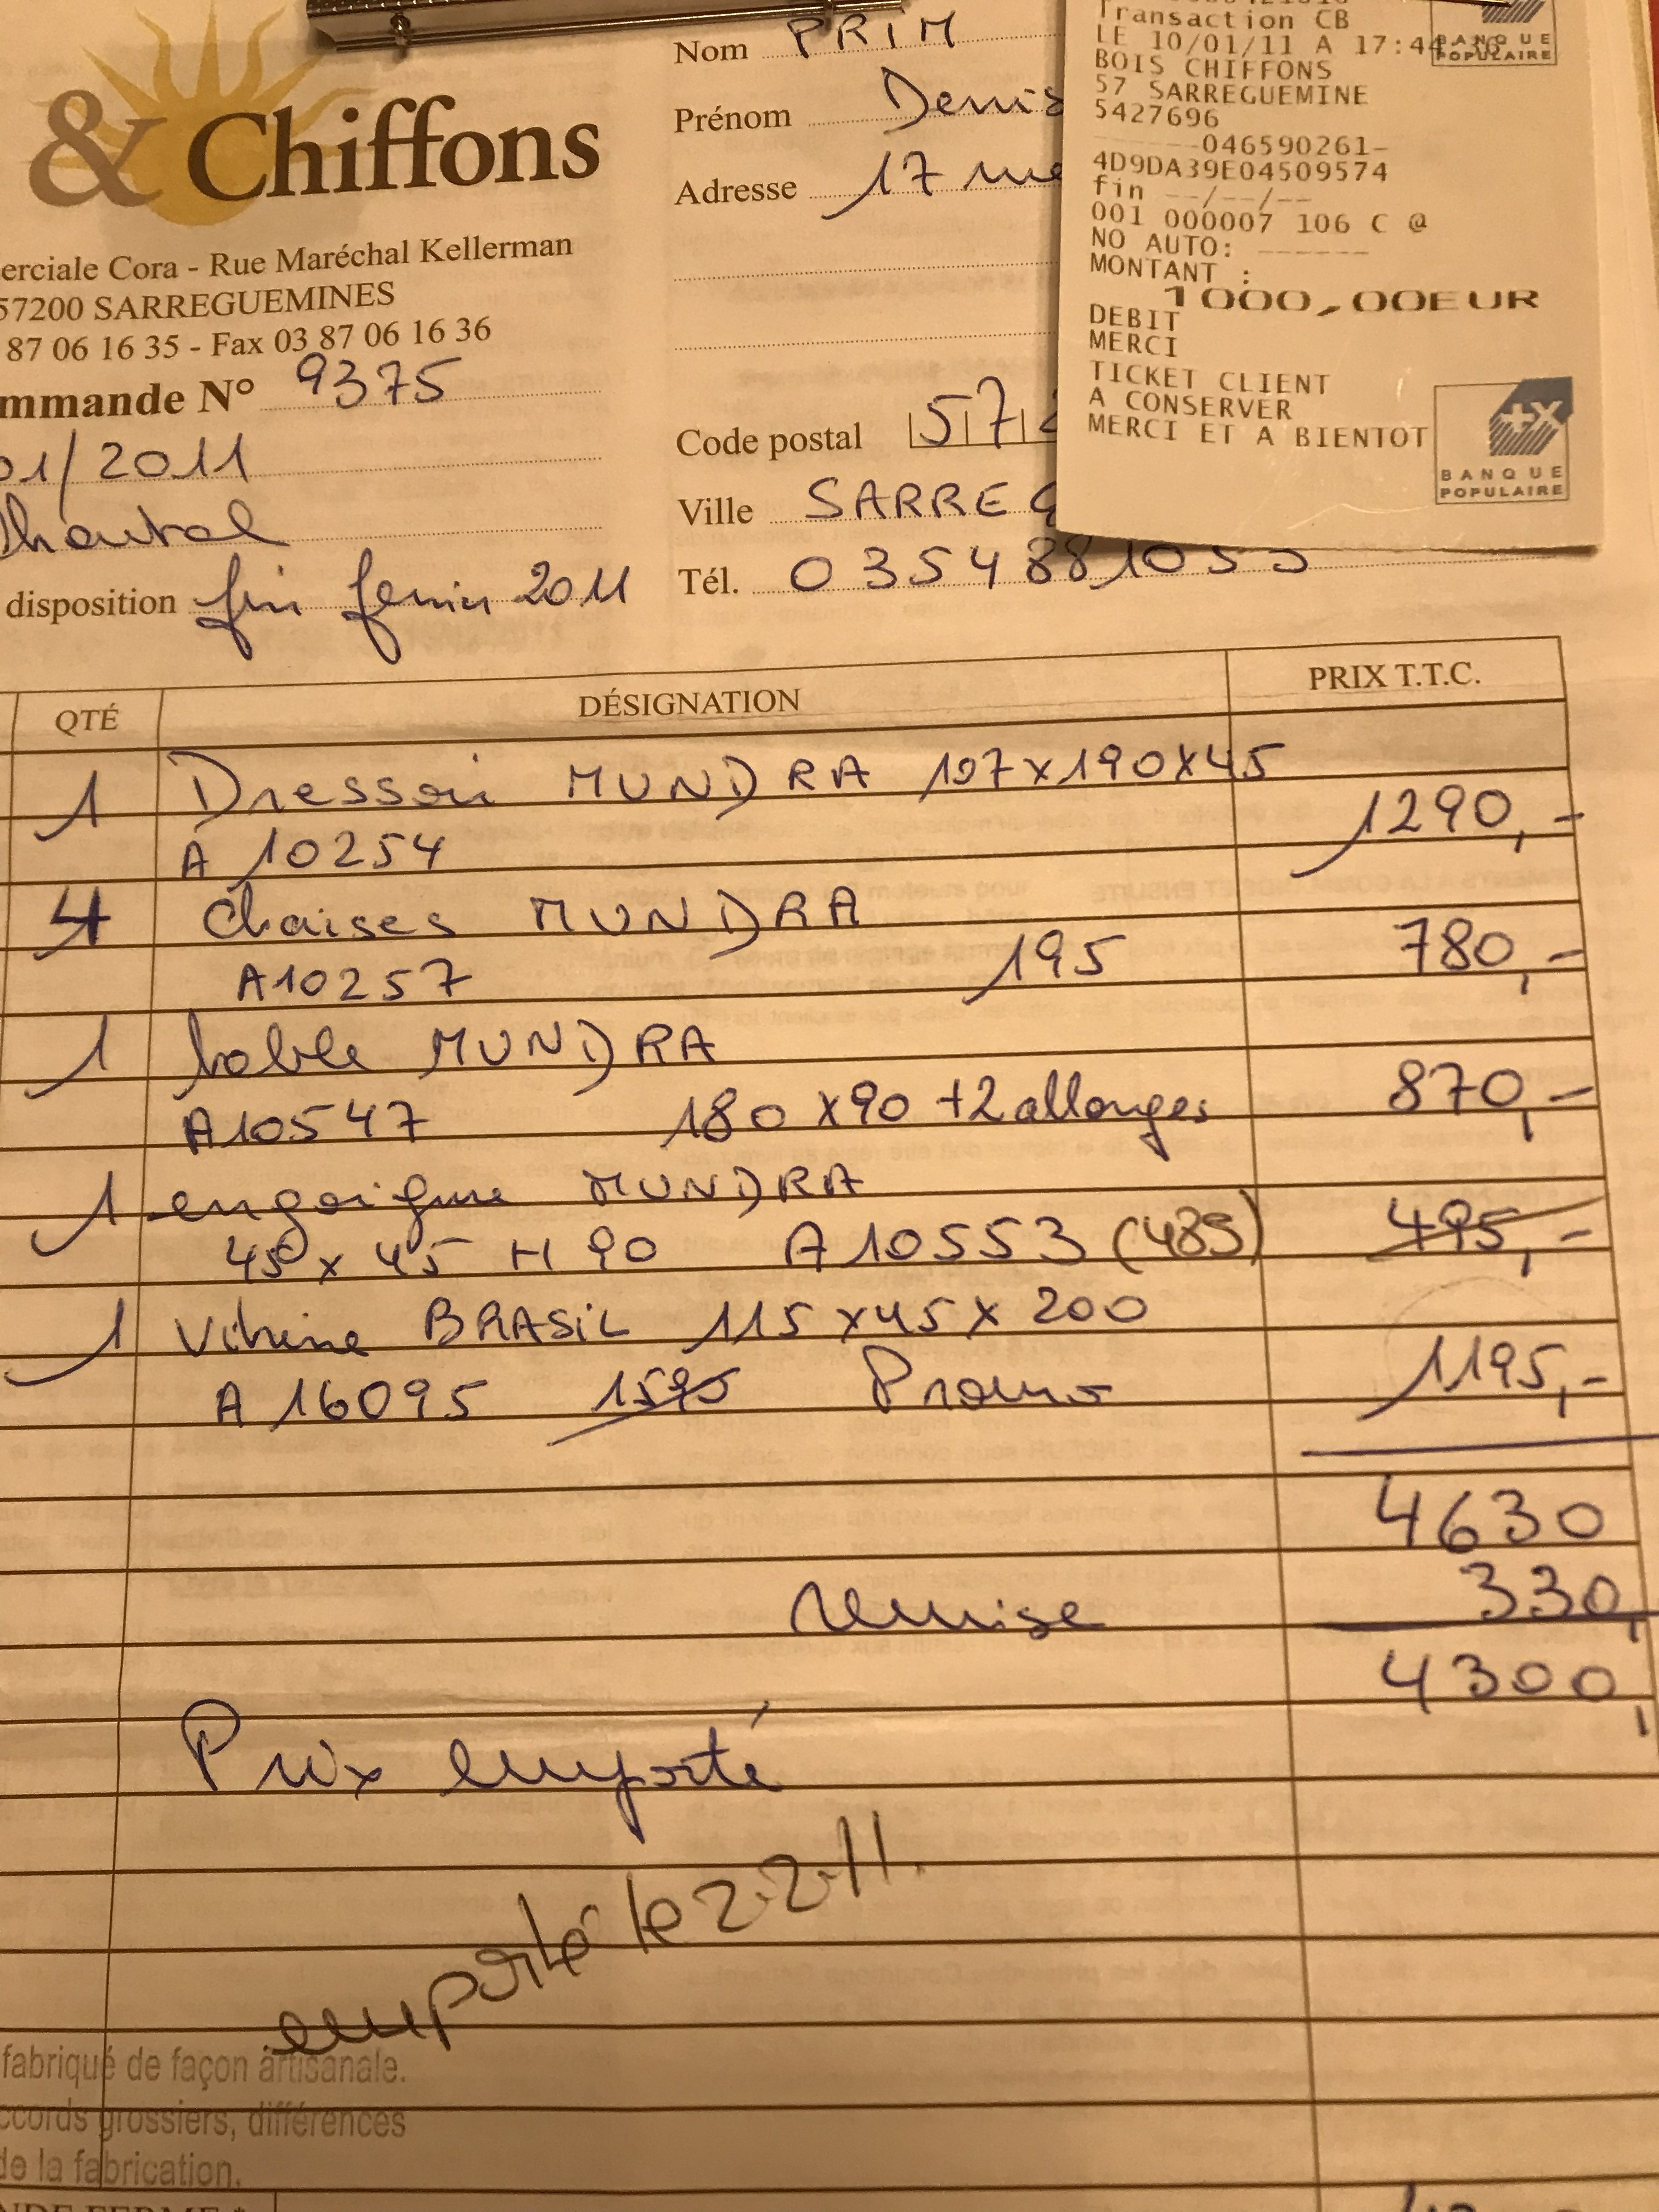 & Chiffons
erciale Cora - Rue Maréchal Kellerman
57200 SARREGUEMINES
87 06 16 35 - Fax 03 87 06 16 36
mmande N° 9375
01/2011
disposition fin fevrier 2011
Nom PRIM
Prénom Denis
Adresse 17 rue
Code postal 572
Ville SARREG
Tél. 0354881053
Transaction CB
LE 10/01/11 A 17:44:36
BANQUE
POPULAIRE
BOIS CHIFFONS
57 SARREGUEMINE
5427696
------046590261-
4D9DA39E04509574
fin --/--/--
001 000007 106 C @
NO AUTO: ------
MONTANT :
1000,00EUR
DEBIT
MERCI
TICKET CLIENT
A CONSERVER
MERCI ET A BIENTOT
BANQUE
POPULAIRE
QTÉ DÉSIGNATION PRIX T.T.C.
1 Dressoir MUNDRA 107x190x45
A 10254 1290,-
4 Chaises MUNDRA
A10257 195 780,-
1 table MUNDRA
A10547 180 x90 +2 allonges 870,-
1 MUNDRA
45 x 45 H 90 A 10553 (485) 495,-
1 Vitrine BRASIL 115 x45 x 200
A 16095 1595 Promo 1195,-
4630
Remise 330,
4300,
Prix emporté
emporté le 2.2.11.
fabriqué de façon artisanale.
ccords grossiers, différences
de la fabrication.
NDE FERME *